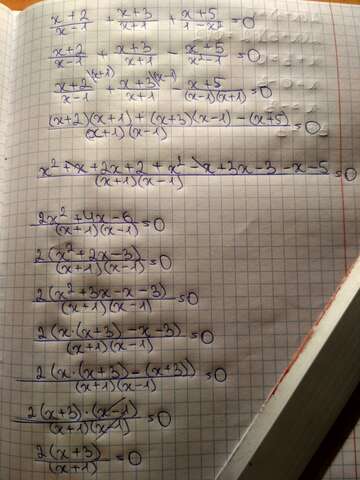 (x+2)/(x-1) + (x+3)/(x+1) + (x+5)/(1-x²) = 0
(x+2)/(x-1) + (x+3)/(x+1) - (x+5)/(x²-1) = 0
(x+2)\(x+1)/(x-1) + (x+3)\(x-1)/(x+1) - (x+5)/((x-1)(x+1)) = 0
((x+2)(x+1)+(x+3)(x-1)-(x+5))/((x+1)(x-1)) = 0
(x²+x+2x+2+x²-x+3x-3-x-5)/((x+1)(x-1)) = 0
(2x²+4x-6)/((x+1)(x-1)) = 0
2(x²+2x-3)/((x+1)(x-1)) = 0
2(x²+3x-x-3)/((x+1)(x-1)) = 0
2(x·(x+3)-x-3)/((x+1)(x-1)) = 0
2(x·(x+3)-(x+3))/((x+1)(x-1)) = 0
2(x+3)·(x-1)/((x+1)(x-1)) = 0
2(x+3)/(x+1) = 0